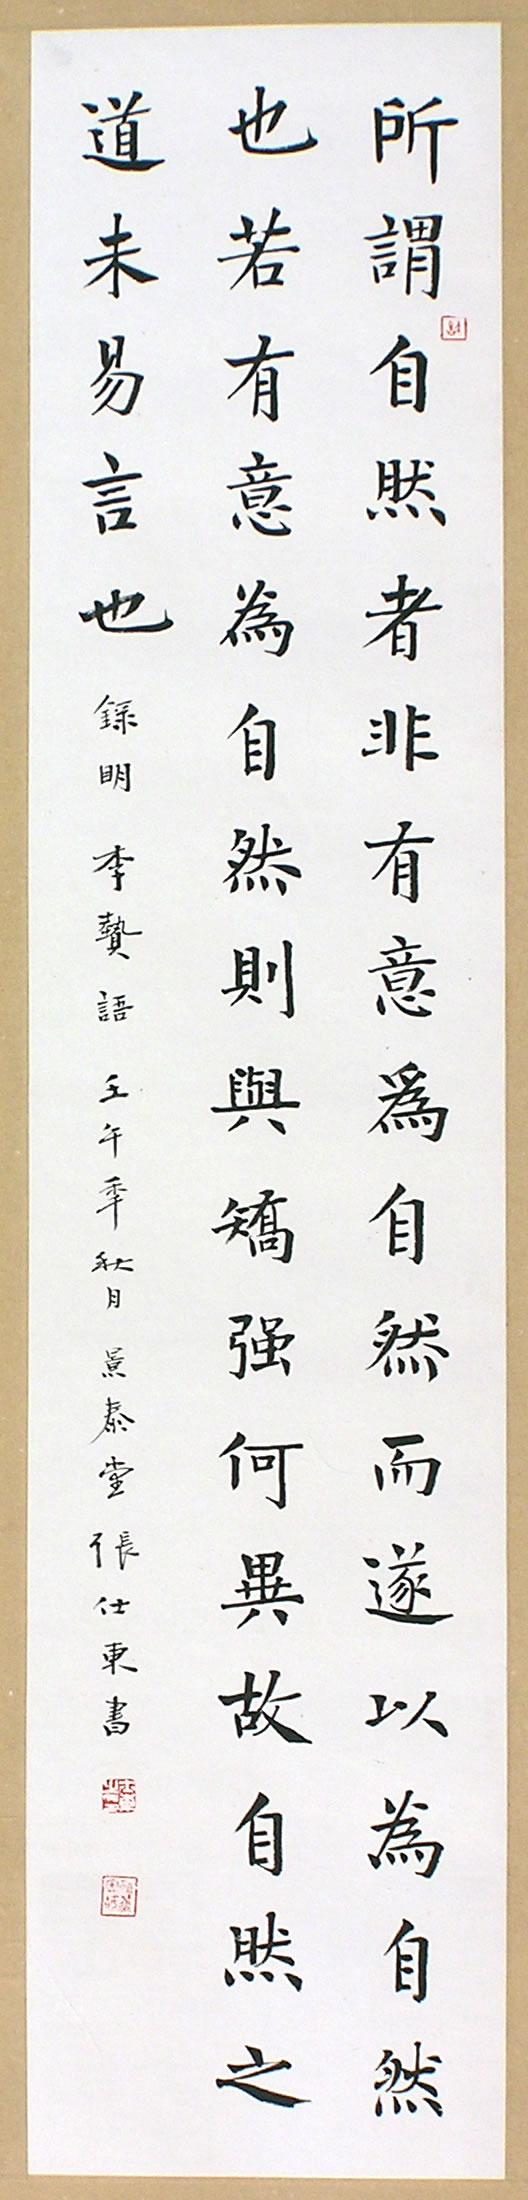 所謂自然者非有意爲自然而遂以為自然
也若有意為自然則與矯强何異故自然之
道未易言也
録明 李贄語 壬午季秋月 景泰堂 張仕東書